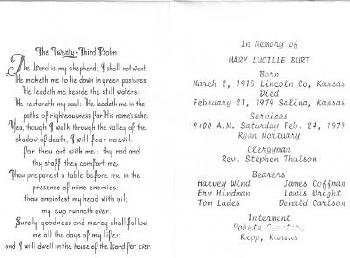 The Twenty-Third Psalm
The Lord is my shepherd; I shall not want.
He maketh me to lie down in green pastures
He leadeth me beside the still waters.
He restoreth my soul: He leadeth me in the
paths of righteousness for His name's sake.
Yea, though I walk through the valley of the
shadow of death, I will fear no evil:
for thou art with me: thy rod and
thy staff they comfort me.
Thou preparest a table before me in the
presence of mine enemies:
thou anointest my head with oil;
my cup runneth over.
Surely goodness and mercy shall follow
me all the days of my life:
and I will dwell in the house of the Lord for ever.
In Memory of
MARY LUCILLE BURT
Born
March 2, Lincoln Co, Kansas
Died
February 21, 1979 Salina, Kansas
Services
9:00 A.M. Saturday Feb. 24, 1979
Ryan Mortuary
Clergyman
Rev. Stephen Thalson
Bearers
Harvey Wind James Coffman
Erv Hindman Louis Wright
Tom Lades Donald Carlson
Interment
Kipp, Kansas